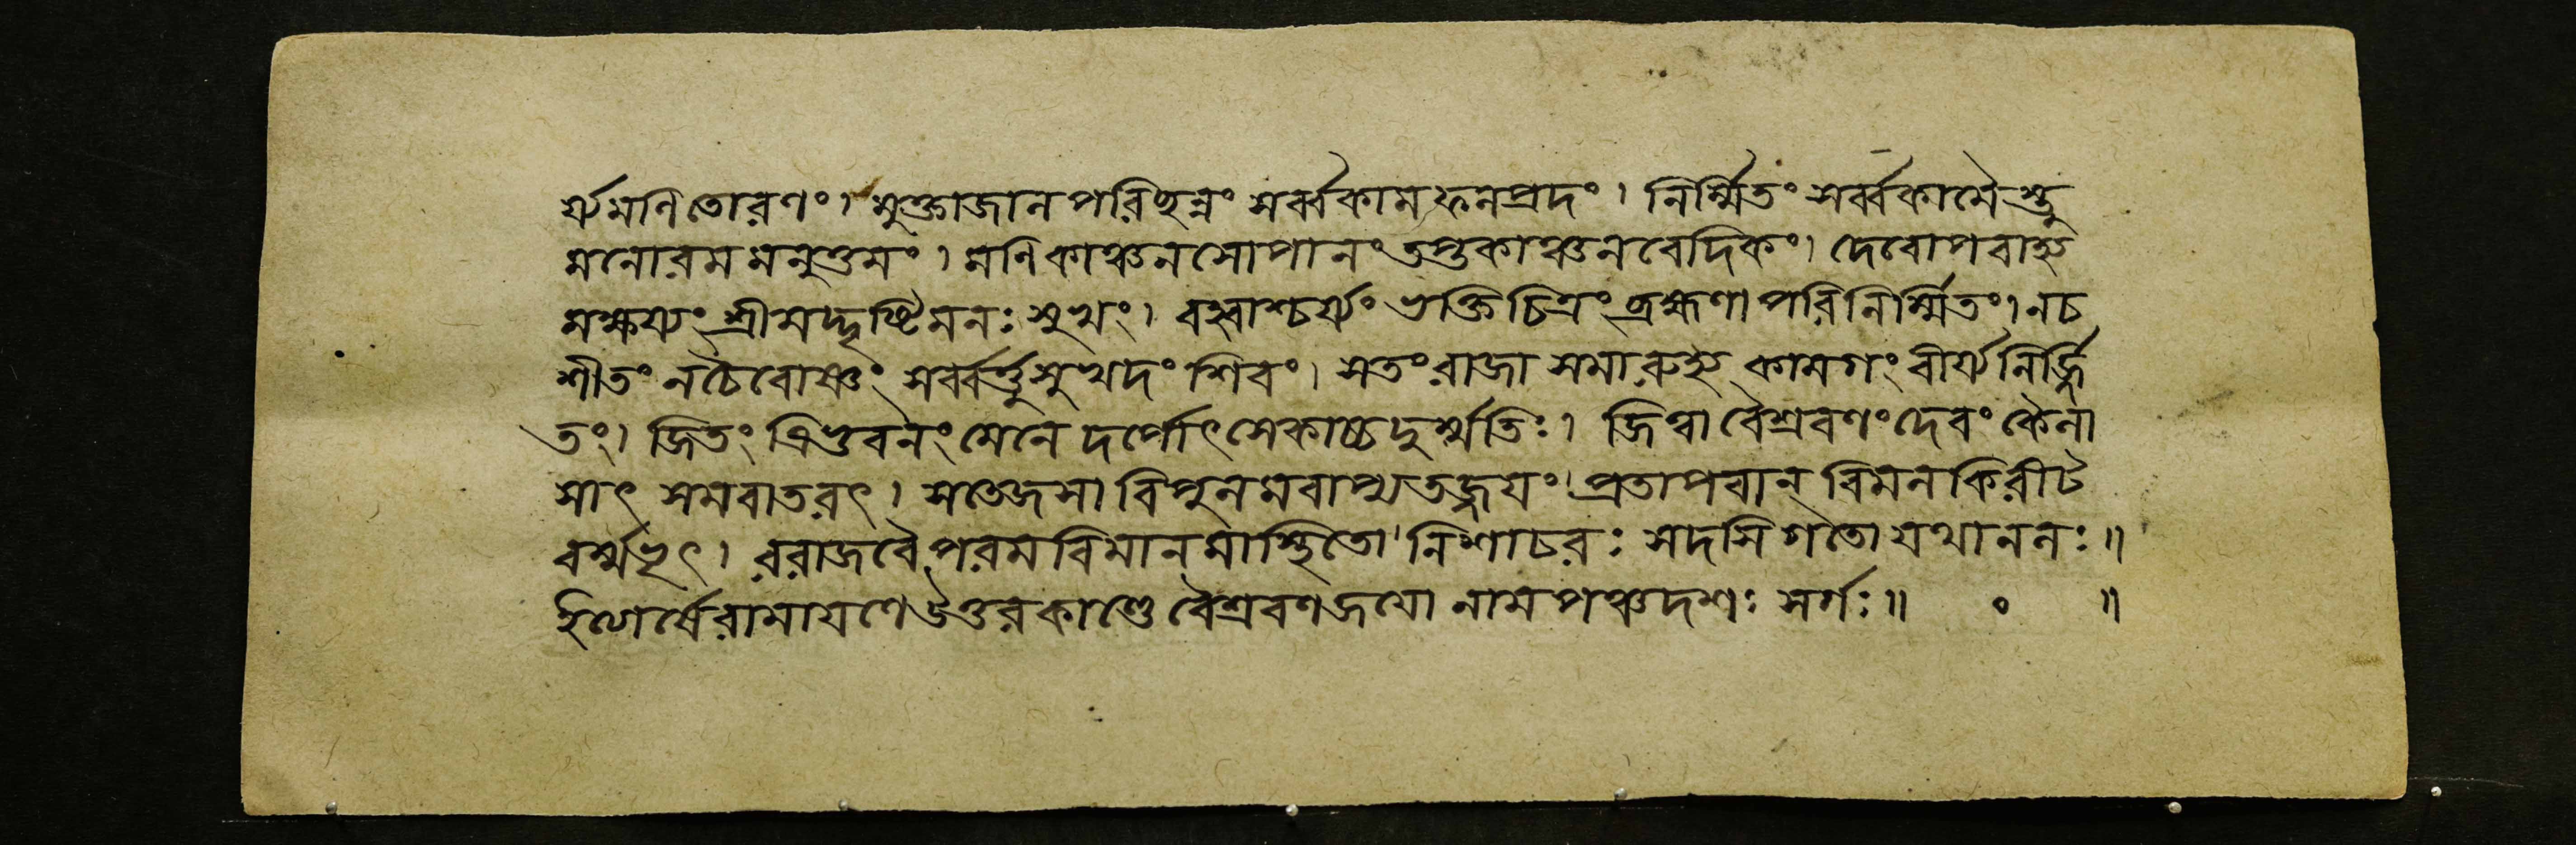 র্য্যমণিতোরণং। মুক্তাজালপরিচ্ছন্নং সর্ব্বকামফলপ্রদং। নির্ম্মিতং সর্ব্বকামৈস্তু
মনোরমমনুত্তমং। মণিকাঞ্চনসোপানং তপ্তকাঞ্চনবেদিকং। দেবোপবাহ্য
মক্ষয়্যং শ্রীমদ্দৃষ্টিমনঃসুখং। বহ্বাশ্চর্য্যং ভক্তিচিত্রং ব্রহ্মণা পরিনির্ম্মিতং। নচ
শীতং নচৈবোষ্ণং সর্ব্বর্ত্তুসুখদং শিবং। সতং রাজা সমারুহ্য কামগং বীর্য্যনির্জ্জি
তং। জিতং ত্রিভুবনং মেনে দর্পোৎসেকাচ্চ দুর্ম্মতিঃ। জিত্বা বৈশ্রবণং দেবং কৈলা
সাৎ সমবাতরৎ। সতেজসা বিপুলমবাপ্য তজ্জয়ং। প্রতাপবান্ বিমলকিরীট
বর্ম্মভৃৎ। ররাজ বৈ পরমবিমানমাস্থিতো নিশাচরঃ সদসি গতো যথানলঃ॥
ইত্যার্ষে রামায়ণে উত্তরকাণ্ডে বৈশ্রবণজয়ো নাম পঞ্চদশঃ সর্গঃ॥ ० ॥